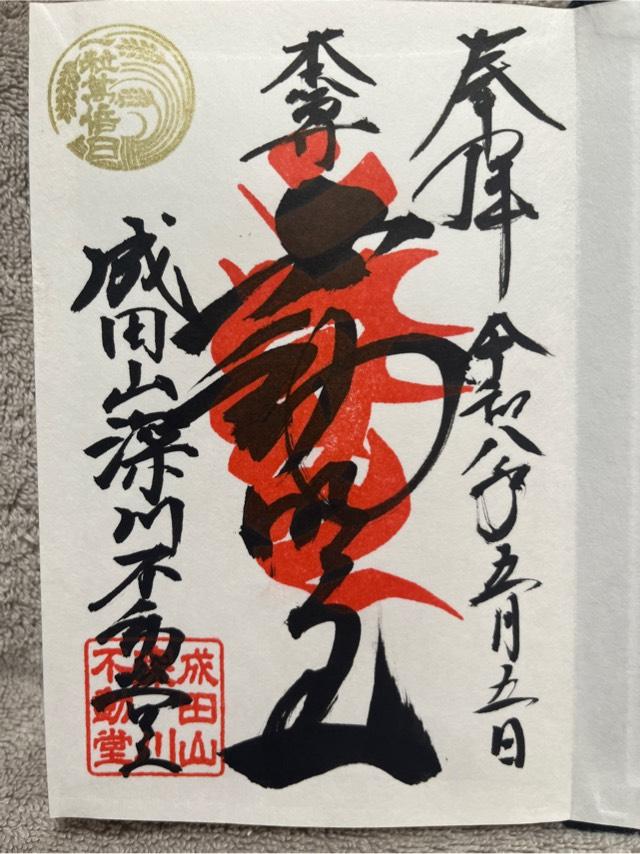 奉拝
令和八年五月五日
本尊
不動明王
成田山深川不動堂
成田山
深川
不動堂